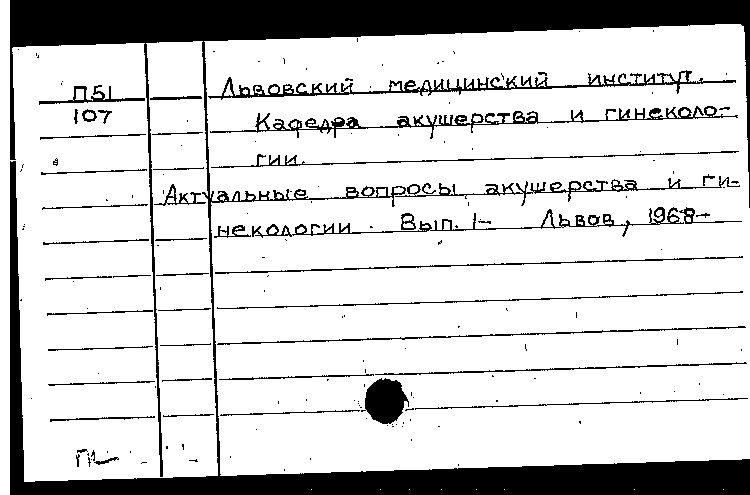 П51
107
Львовский медицинский институт.
Кафедра акушерства и гинеколо-
гии.
Актуальные вопросы акушерства и ги-
некологии. Вып. 1- Львов, 1968-